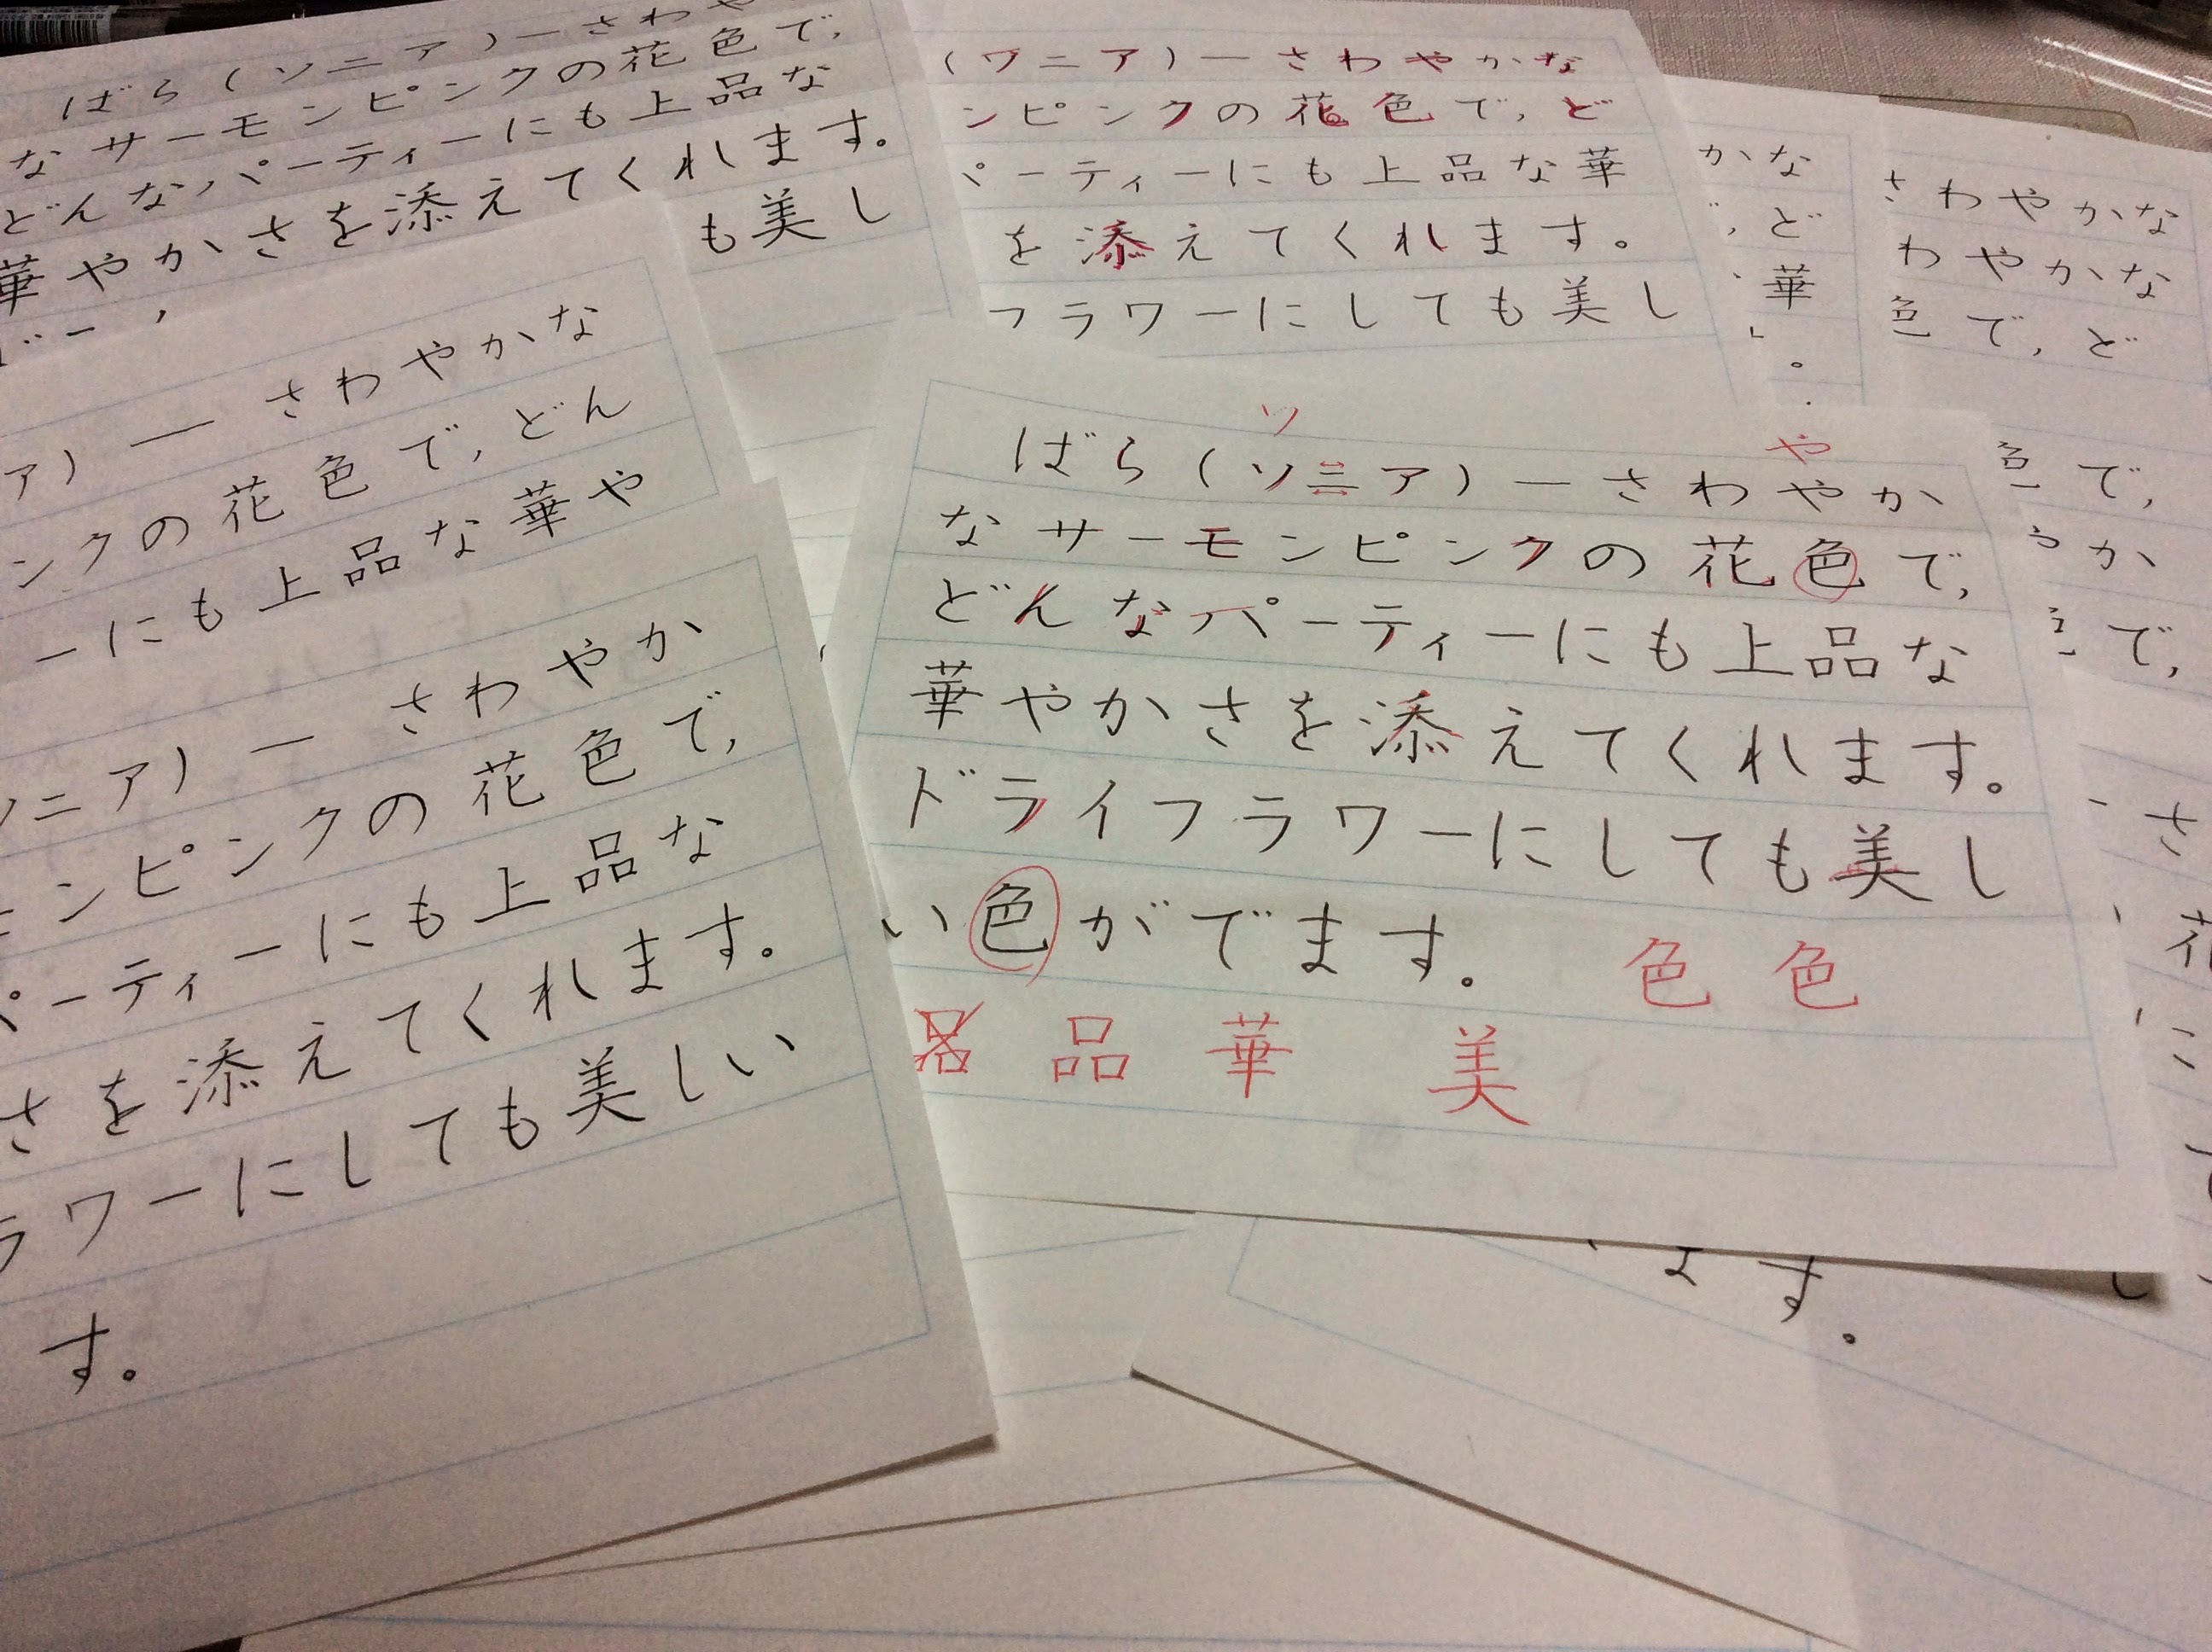 ばら(ソニア)ーさわや
なサーモンピンクの花色で,
どんなパーティーにも上品な
華やかさを添えてくれます。
も美し
(ワニア)ーさわやかな
ンピンクの花色で,ど
パーティーにも上品な華
を添えてくれます。
フラワーにしても美し
かな
ど
華
さわやかな
わやかな
色で,ど
色で,
やか
で,
さ
花
に
ア)ーさわやかな
ンクの花色で,どん
ーにも上品な華や
ソニア)ーさわやか
モンピンクの花色で,
パーティーにも上品な
さを添えてくれます。
ラワーにしても美しい
す。
ソ
や
ばら(ソニア)ーさわやか
なサーモンピンクの花色で,
どんなパーティーにも上品な
華やかさを添えてくれます。
ドライフラワーにしても美し
い色がでます.
色 色
品 華 美
ます.